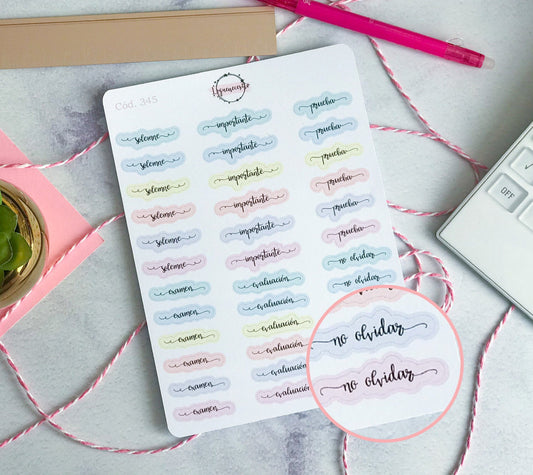 Cód. 345
solemne
solemne
solemne
solemne
solemne
solemne
examen
examen
examen
examen
examen
examen
importante
importante
importante
importante
importante
importante
evaluación
evaluación
evaluación
evaluación
evaluación
evaluación
prueba
prueba
prueba
prueba
prueba
prueba
no olvidar
no olvidar
no olvidar
no olvidar
OFF